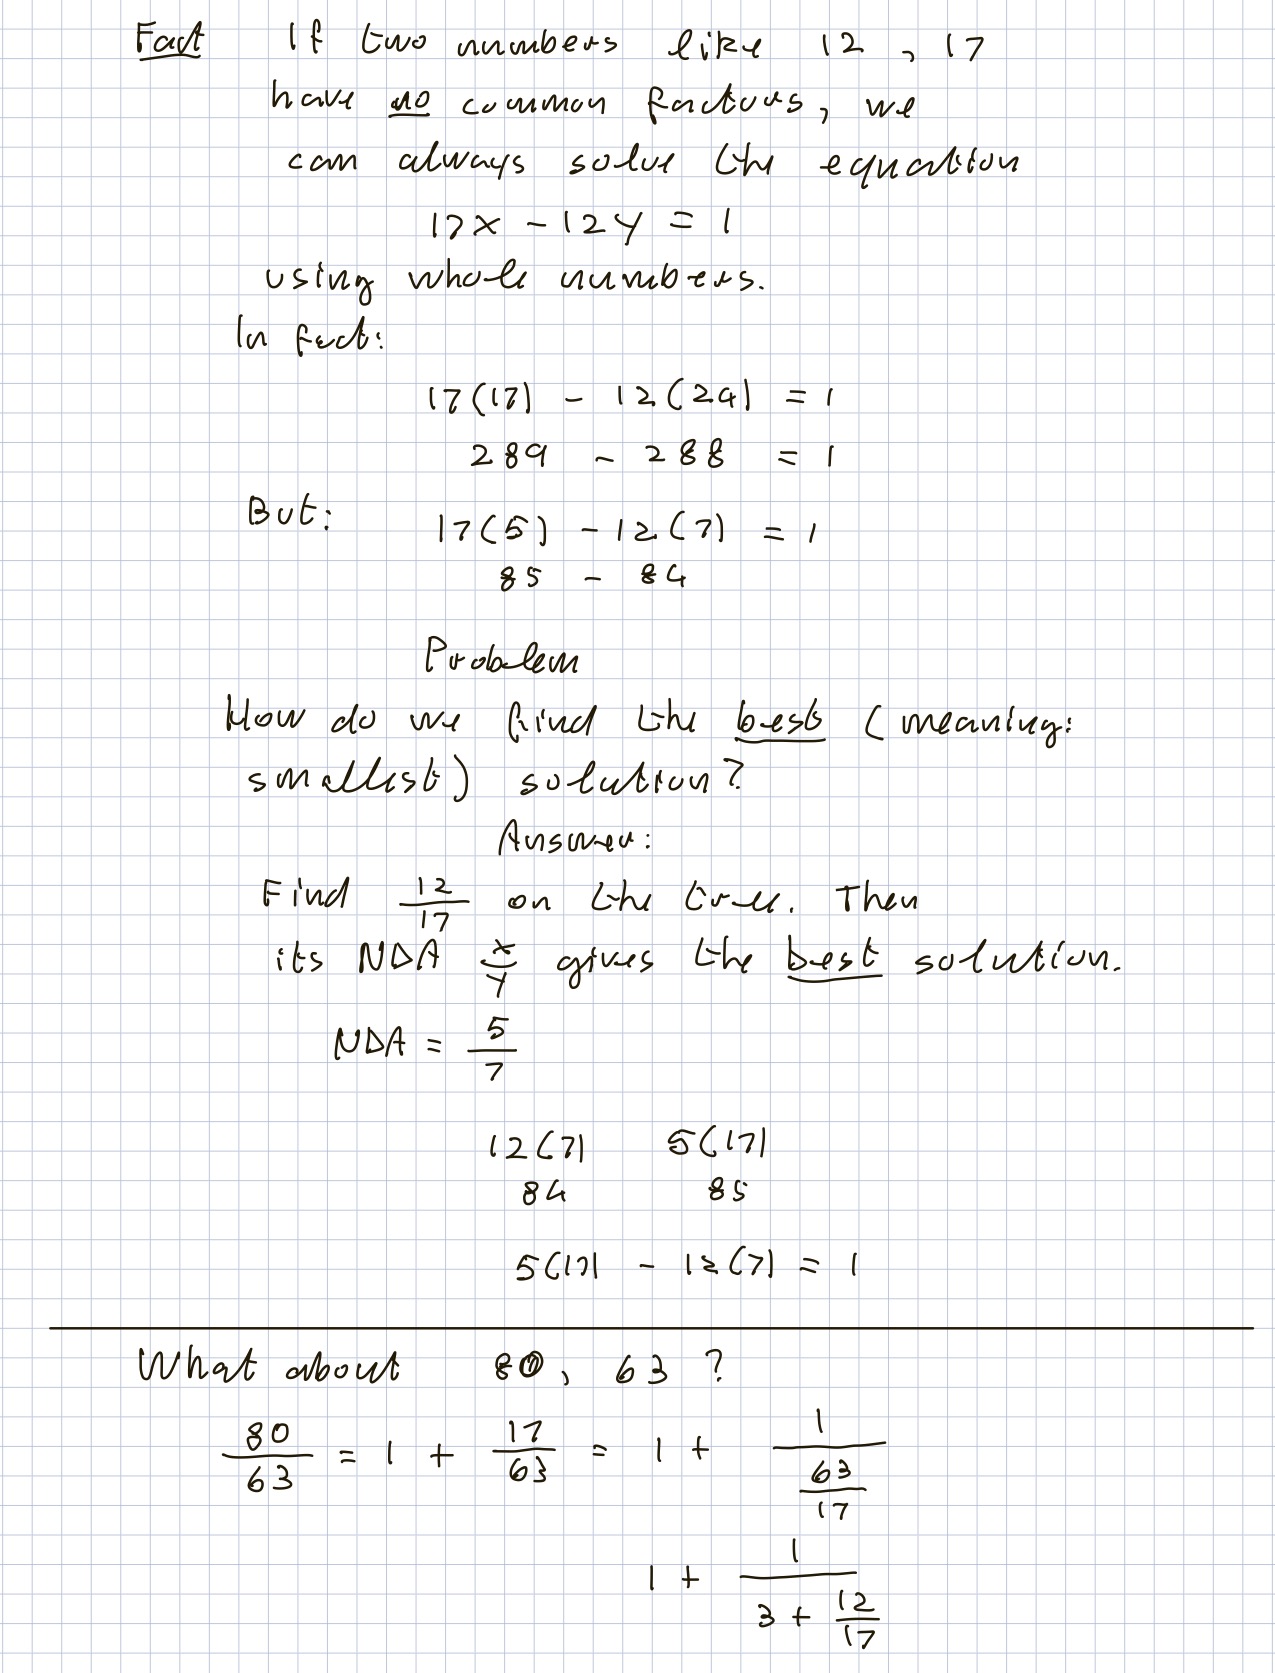 Fact If two numbers like 12, 17
have no common factors, we
can always solve the equation
17x - 12y = 1
using whole numbers.
In fact:
17(17) - 12(24) = 1
289 - 288 = 1
But: 17(5) - 12(7) = 1
85 - 84
Problem
How do we find the best (meaning:
smallest) solution?
Answer:
Find 12/17 on the tree. Then
its NDA x/y gives the best solution.
NDA = 5/7
12(7) 5(17)
84 85
5(17) - 12(7) = 1
What about 80, 63?
80/63 = 1 + 17/63 = 1 + 1/(63/17)
1 + 1/(3 + 12/17)